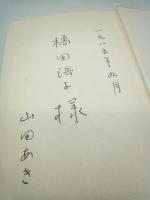 一九八五年九月
橋田詩子様
山田あき